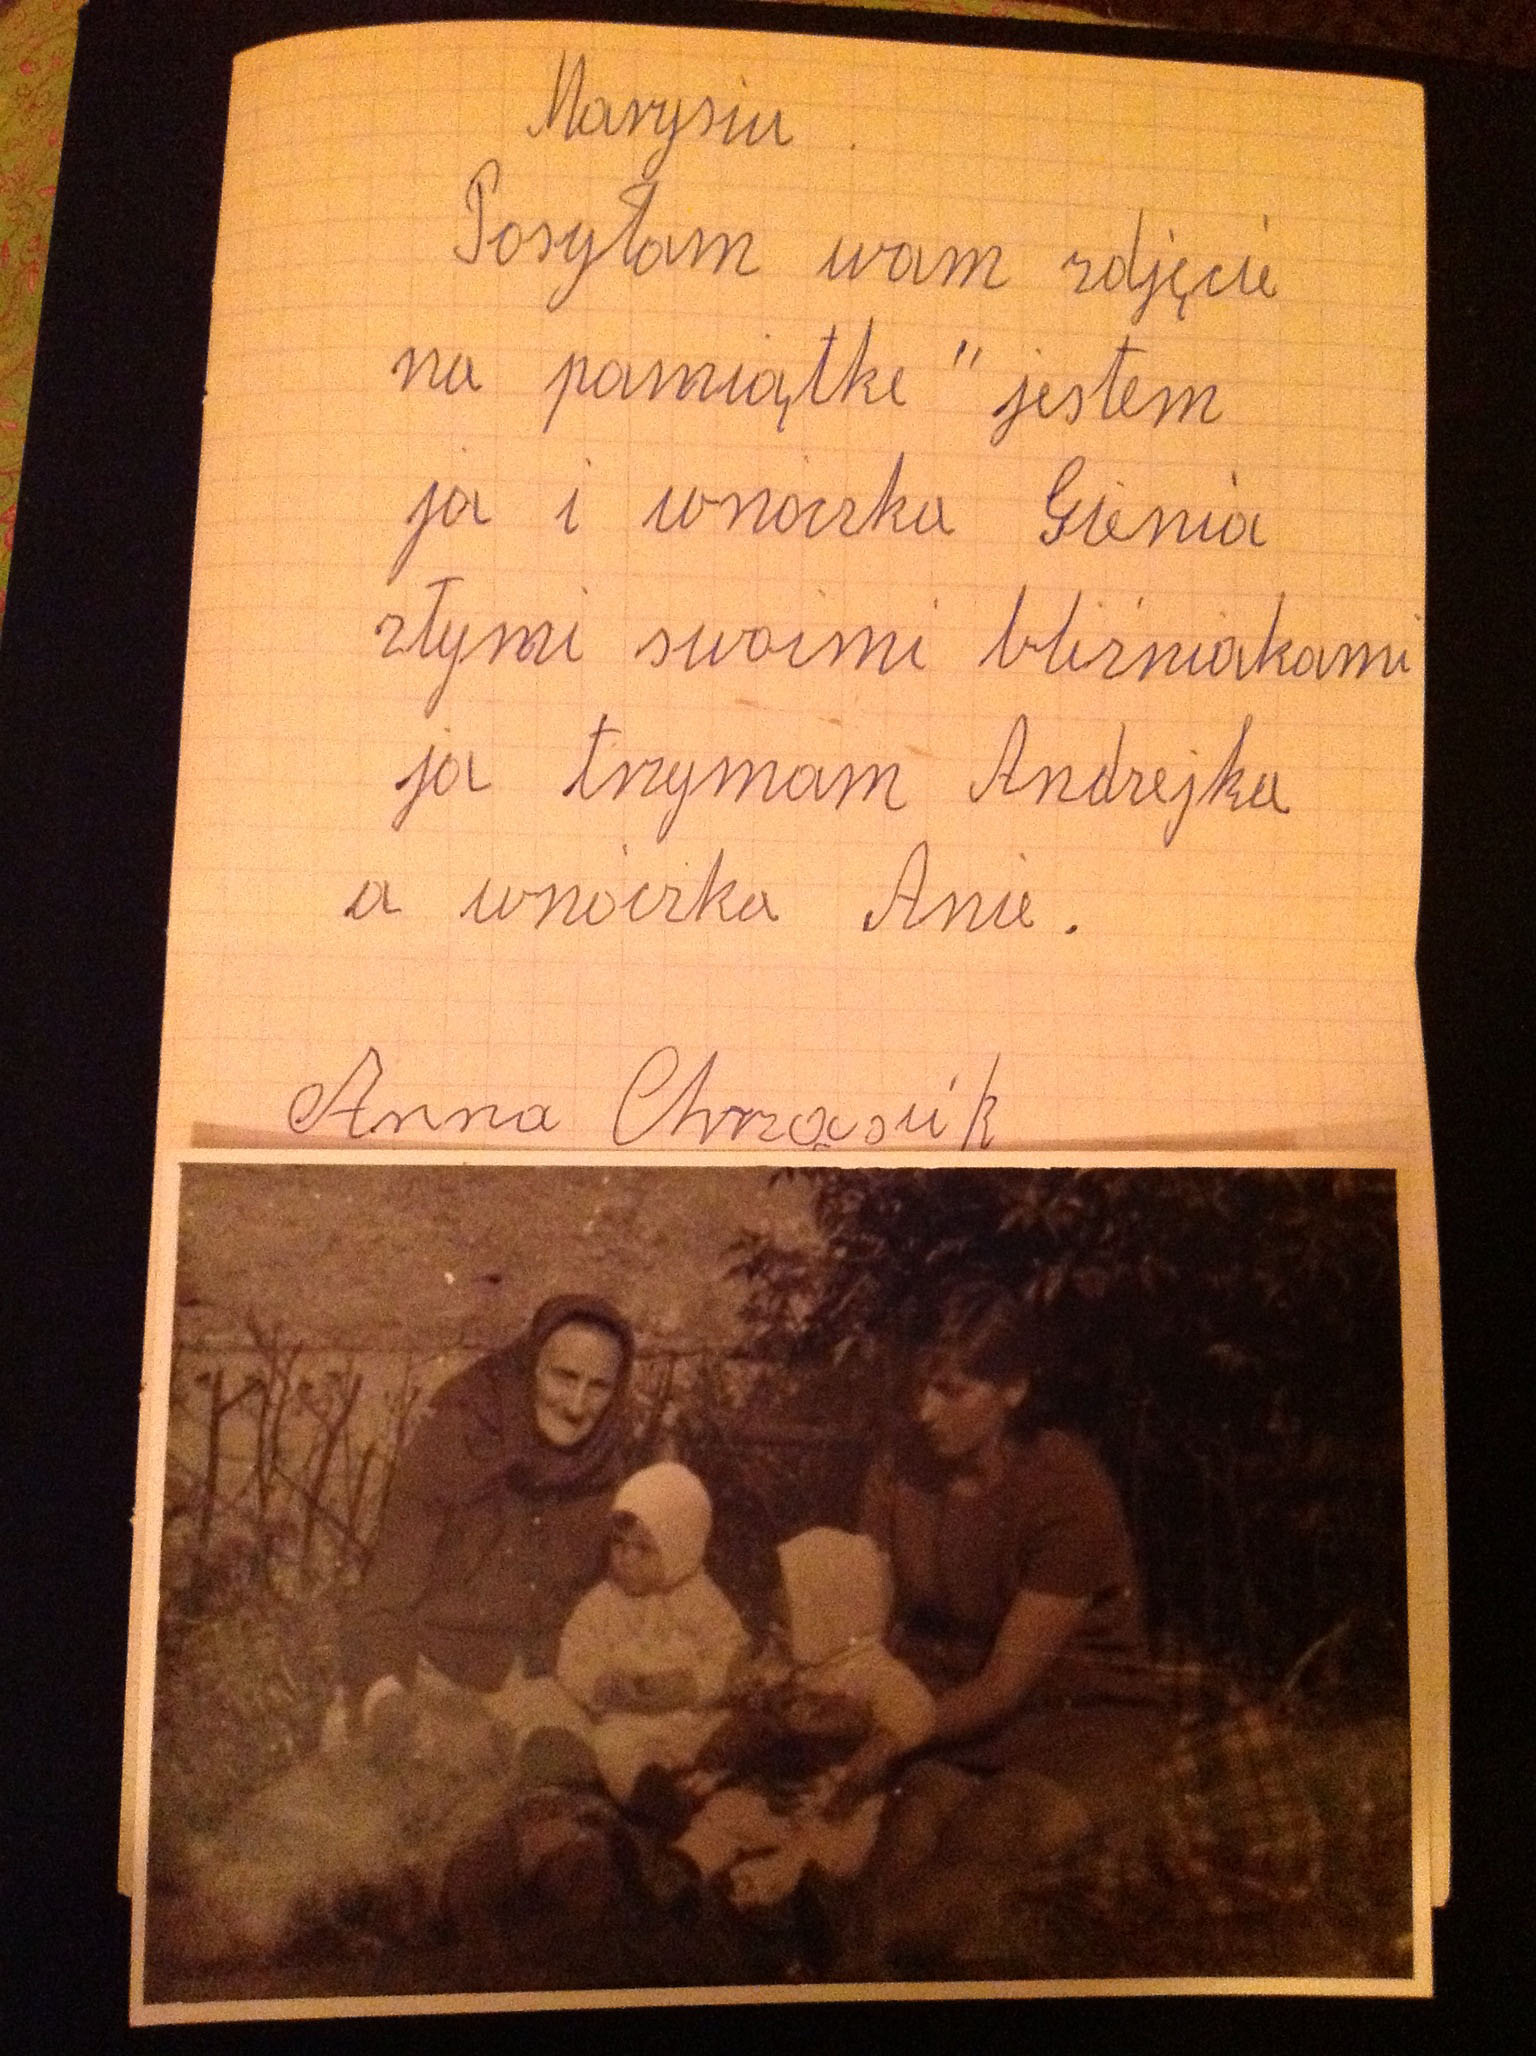 Marysiu.
Posyłam wam zdjęcie
na pamiątke" jestem
ja i wnóczka Gienia
ztymi swoimi bliźniakami
ja trzymam Andrejka
a wnóczka Anie.
Anna Chrząsćik